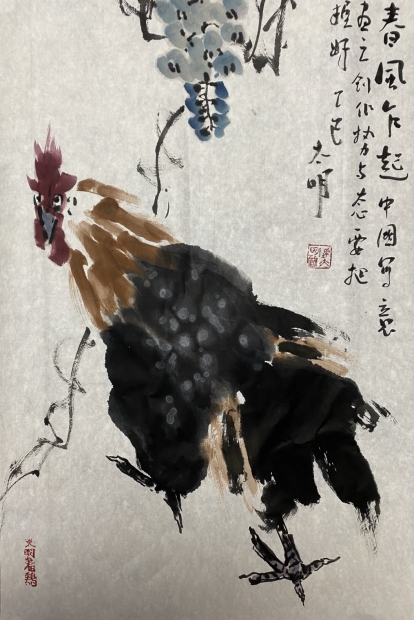 春風乍起中國写意
画之创作势与态要把
握好
太明